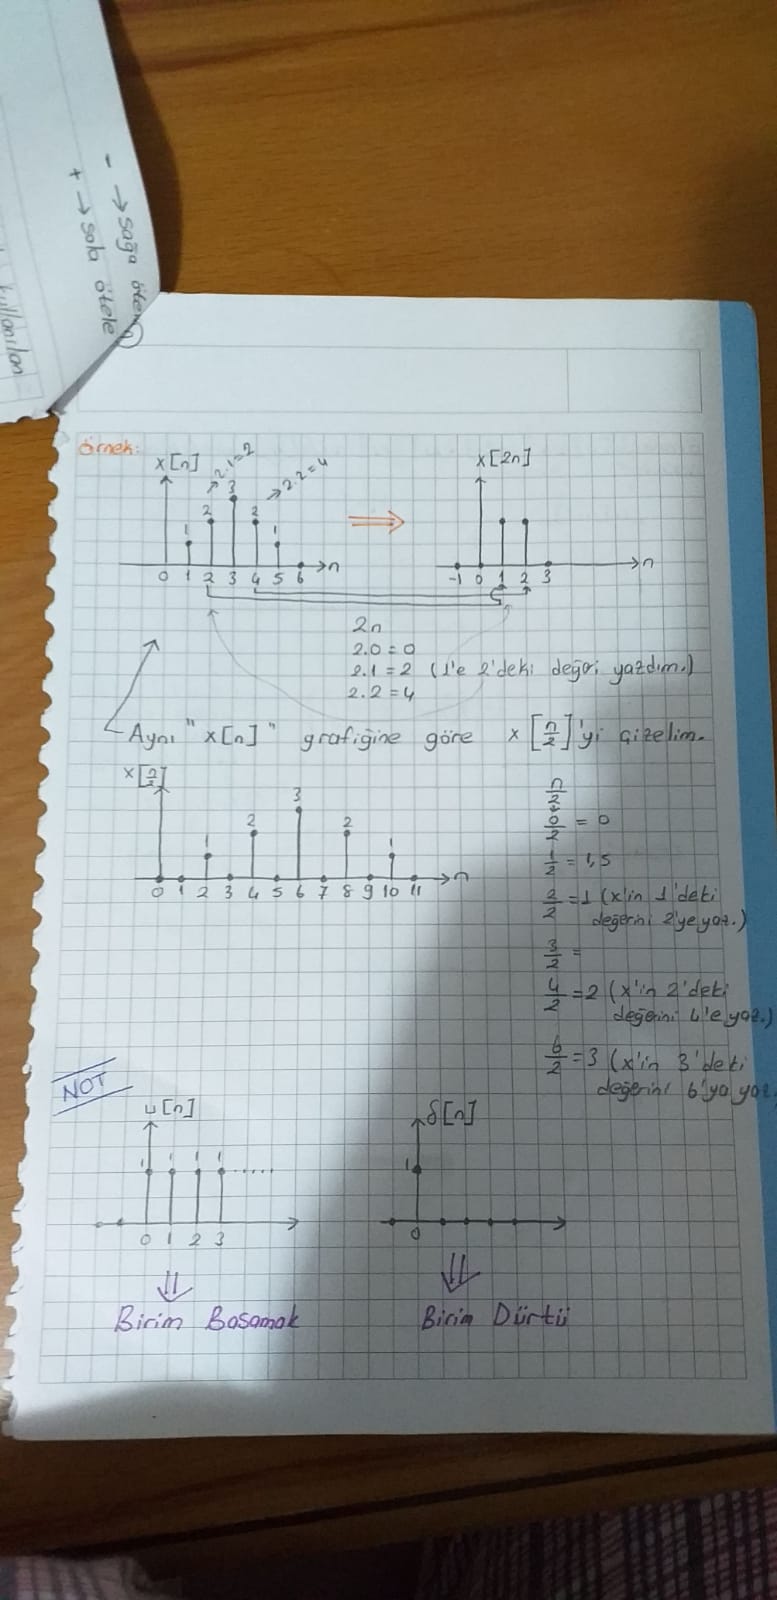 - → sağa ötele
+ → sola ötele
kullanılan
Örnek:
x[n]
→ 2.1=2
→ 2.2=4
1 2 3 2 1
0 1 2 3 4 5 6 → n
⇒
x[2n]
-1 0 1 2 3 → n
2n
2.0=0
2.1=2 (1'e 2'deki değeri yazdım.)
2.2=4
Aynı "x[n]" grafiğine göre x[n/2]'yi çizelim.
x[n/2]
1 2 3 2 1
0 1 2 3 4 5 6 7 8 9 10 11 → n
n/2
0/2 = 0
1/2 = 1,5
2/2 = 1 (x'in 1'deki
değerini 2'ye yaz.)
3/2 =
4/2 = 2 (x'in 2'deki
değerini 4'e yaz.)
6/2 = 3 (x'in 3'deki
değerini 6'ya yaz.
NOT
u[n]
1 1 1 1 .....
0 1 2 3
⇓
Birim Basamak
δ[n]
1
0
⇓
Birim Dürtü